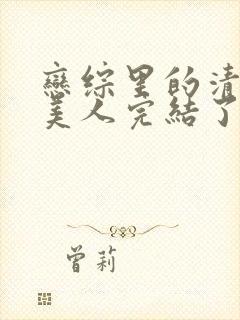 戀综里的清
美人完結了
曾莉